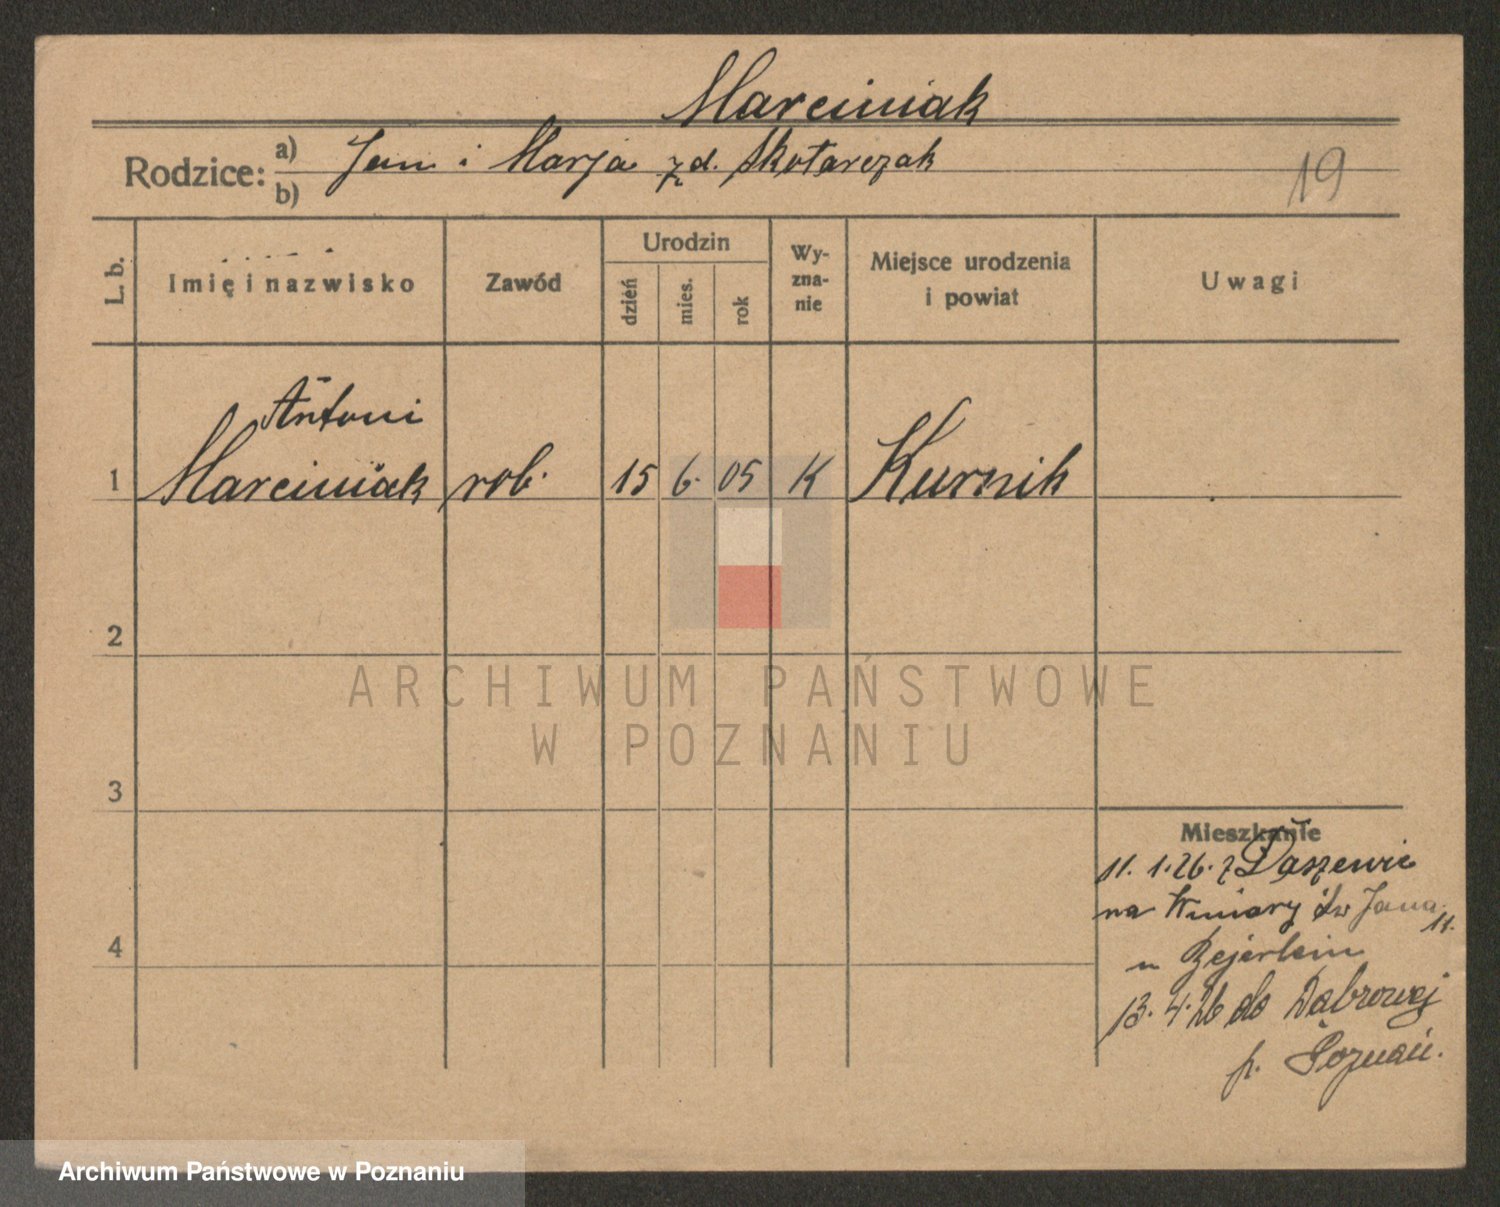 Marciniak
Rodzice: a) Jan i Marja z d. Skotarczak
b)
19
L. b.
Imię i nazwisko
Zawód
Urodzin
dzień
mies.
rok
Wy-
zna-
nie
Miejsce urodzenia
i powiat
Uwagi
Antoni
1 Marciniak rob. 15 6. 05 K Kurnik
2
3
4
Mieszkanie
11. 1. 26. z Daszewic
na Winiary Św Jana
11.
u Bejerlein
13. 4. 26 do Dąbrowej
p. Poznań.
ARCHIWUM PAŃSTWOWE
W POZNANIU
Archiwum Państwowe w Poznaniu